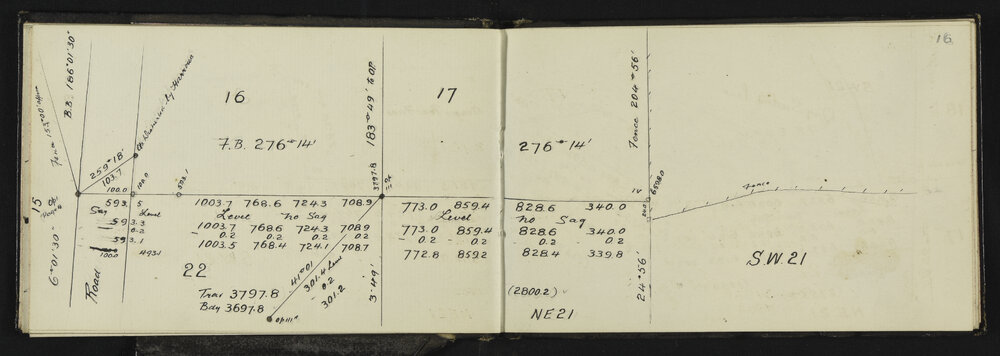 16
16
17
B.B. 186°01'30"
183°49' to OP
Fence 204°56'
F.B. 276°14'
276°14'
259°18'
103.7
100.0
100.0
593.1
3797.8
6598.0
Fence
15
593.5
1003.7 768.6 724.3 708.9
773.0 859.4
828.6 340.0
Sag
Level
Level no Sag
Level
no Sag
593.3
1003.7 768.6 724.3 708.9
773.0 859.4
828.6 340.0
0.2
- 0.2 0.2 0.2 / 0.2
- 0.2 - 0.2
- 0.2 0.2
593.1
1003.5 768.4 724.1 708.7
772.8 859.2
828.4 339.8
100.0
493.1
6°01'30"
Road
22
41°01'
301.4 Level
- 0.2
301.2
3°49'
24°56'
S.W. 21
Trav 3797.8
Bdy 3697.8
(2800.2)
NE 21